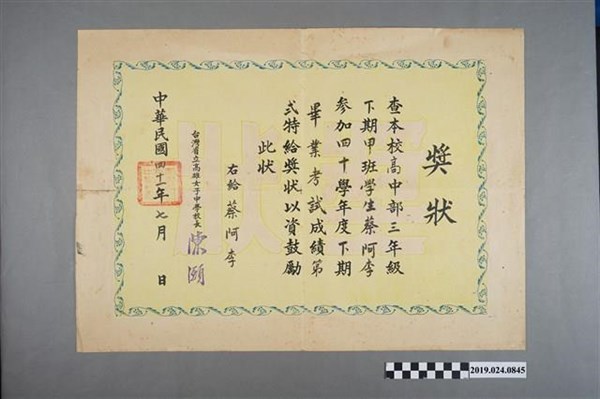 奬狀
查本校高中部三年級
下期甲班學生蔡阿李
參加四十學年度下期
畢業考試成績第
弍特給奬狀以資鼓勵
此狀
右給蔡阿李
台灣省立高雄女子中學校長
中華民國四十一年七月 日
2019.024.0845